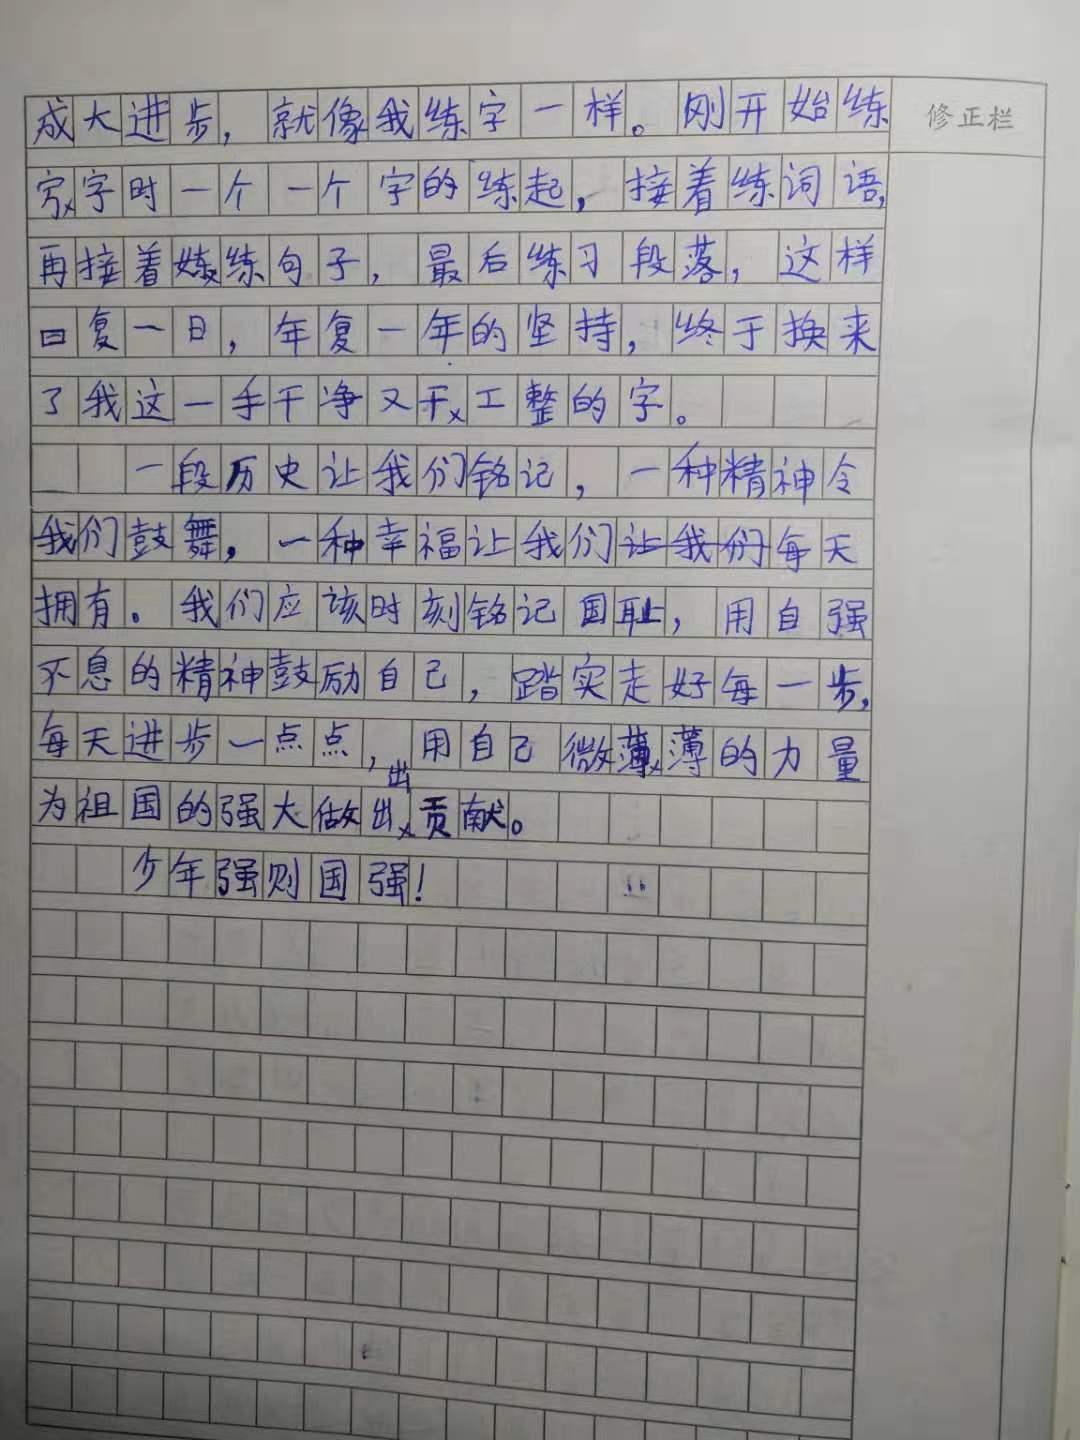 成大进步，就像我练字一样。刚开始练
修正栏
字时一个一个字的练起，接着练词语，
再接着练句子，最后练习段落，这样
日复一日，年复一年的坚持，终于换来
了我这一手干净又工整的字。
一段历史让我们铭记，一种精神令
我们鼓舞，一种幸福让我们每天
拥有。我们应该时刻铭记国耻，用自强
不息的精神鼓励自己，踏实走好每一步，
每天进步一点点，用自己微薄的力量
为祖国的强大做出贡献。
少年强则国强！